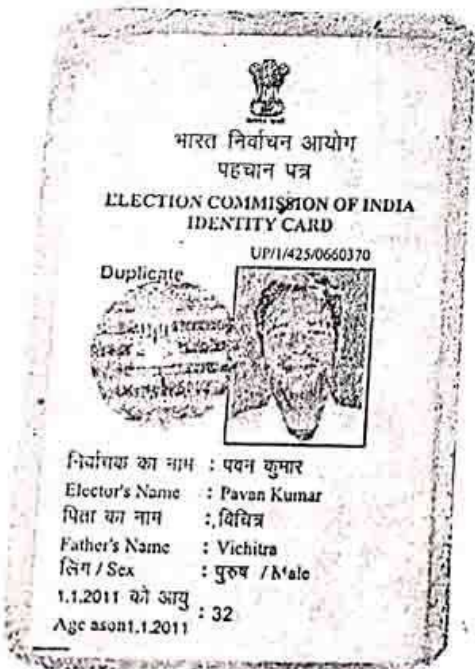 भारत निर्वाचन आयोग
पहचान पत्र
ELECTION COMMISSION OF INDIA
IDENTITY CARD
UP/1/425/0660370
Duplicate
निर्वाचक का नाम : पवन कुमार
Elector's Name : Pavan Kumar
पिता का नाम : विचित्र
Father's Name : Vichitra
लिंग / Sex : पुरुष / Male
1.1.2011 को आयु : 32
Age ason1.1.2011